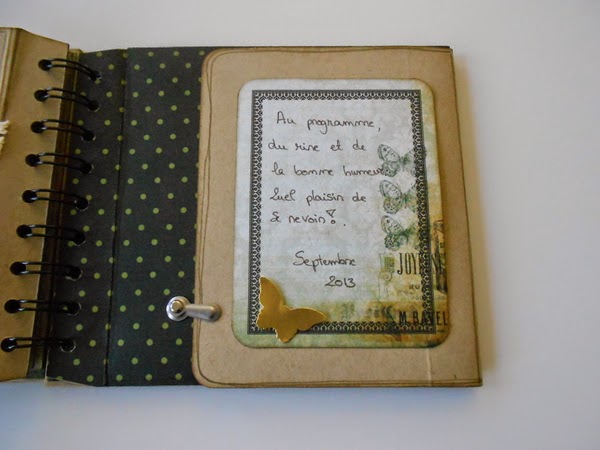 Au programme,
du rire et de
la bonne humeur
Quel plaisir de
se revoir !.
Septembre
2013
JOY
M. BAYEL